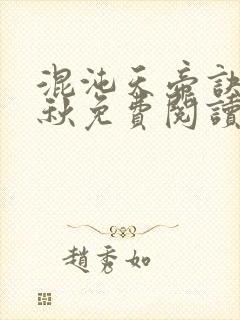 混沌天帝訣
秋免費閱讀
趙秀如